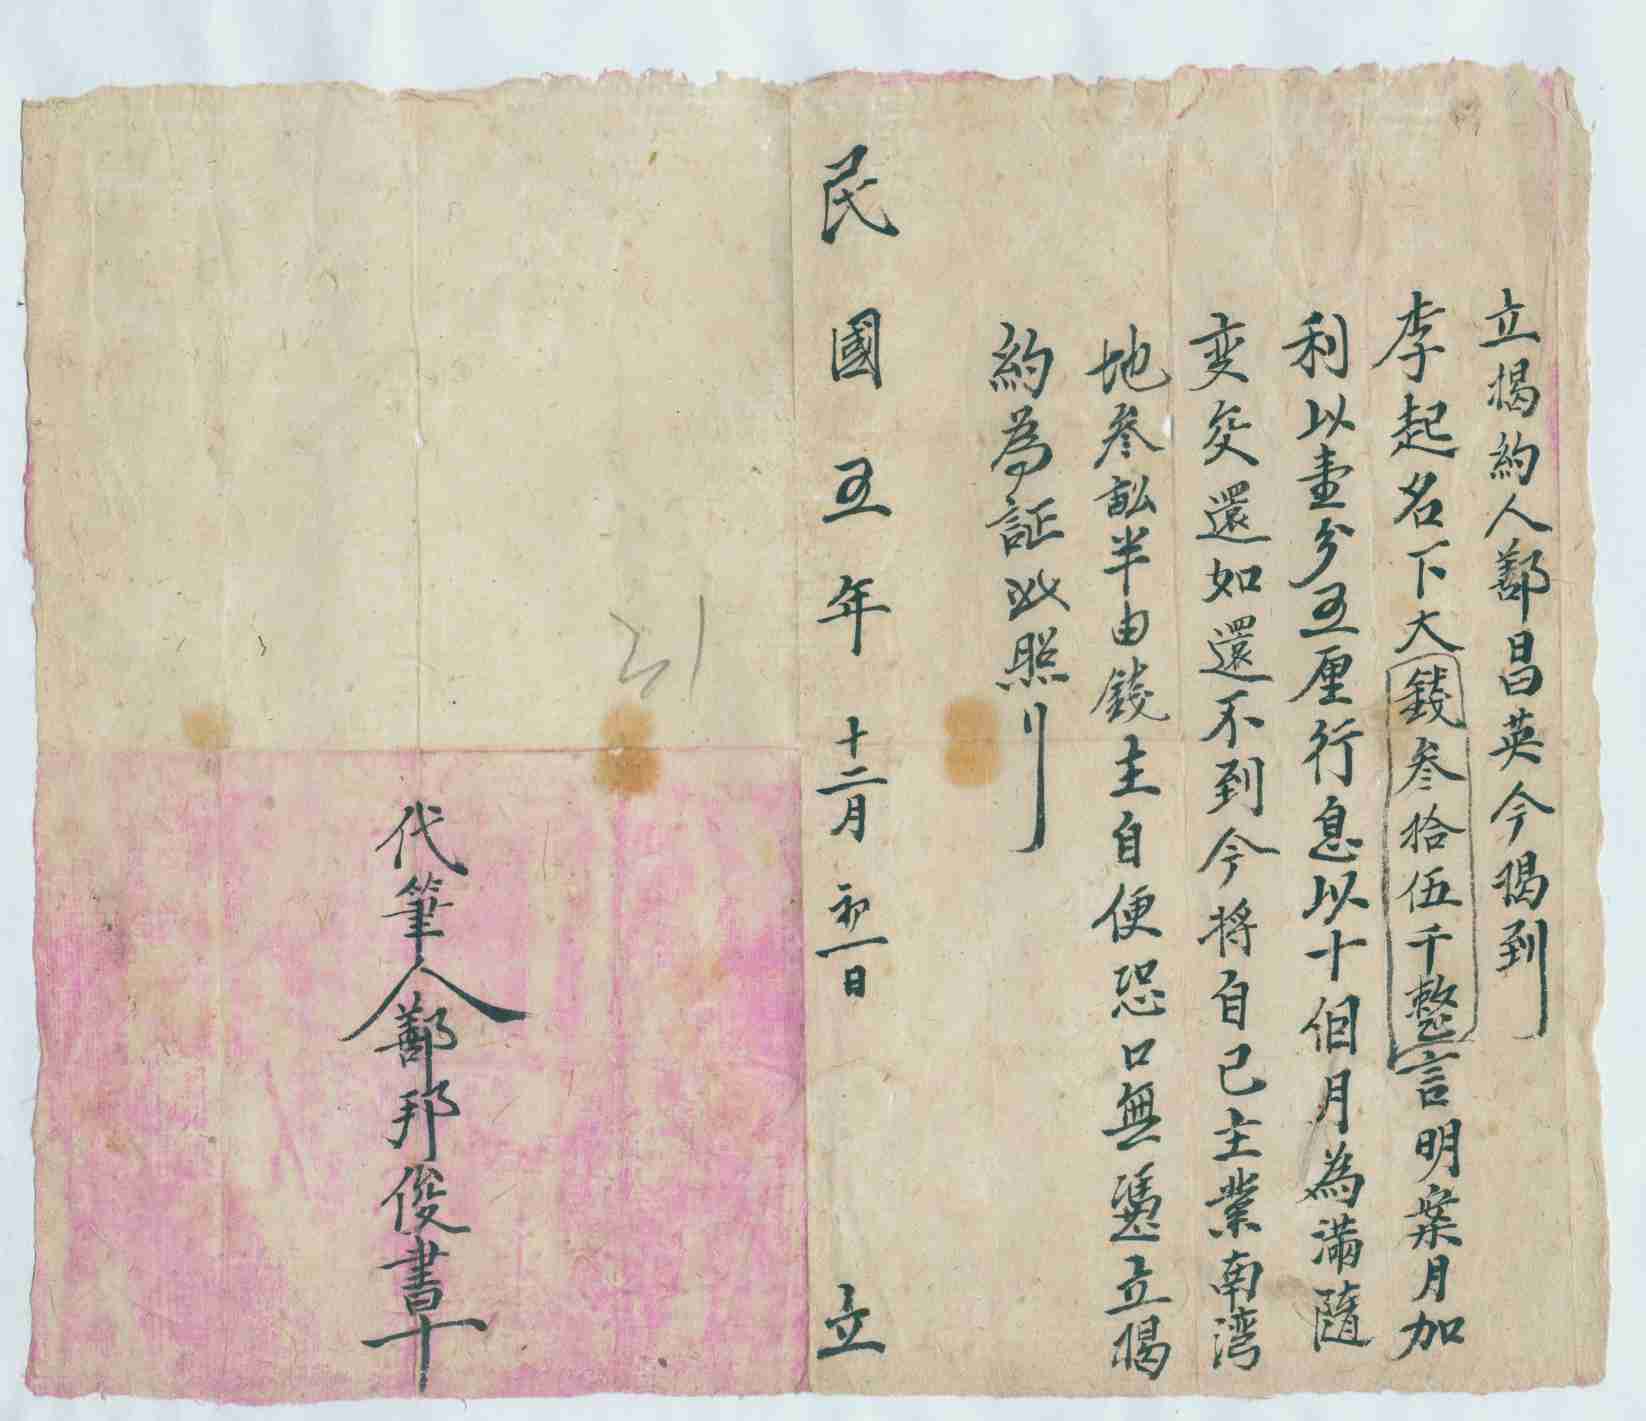 立揭約人鄯昌英今揭到
李起名下大錢叁拾伍千整言明案月加
利以壹分五厘行息以十個月為滿隨
变交還如還不到今将自己主業南湾
地叁畝半由錢主自便恐口無憑立揭
約為証此照
民國五年十二月初一日立
代筆人鄯邦俊書十